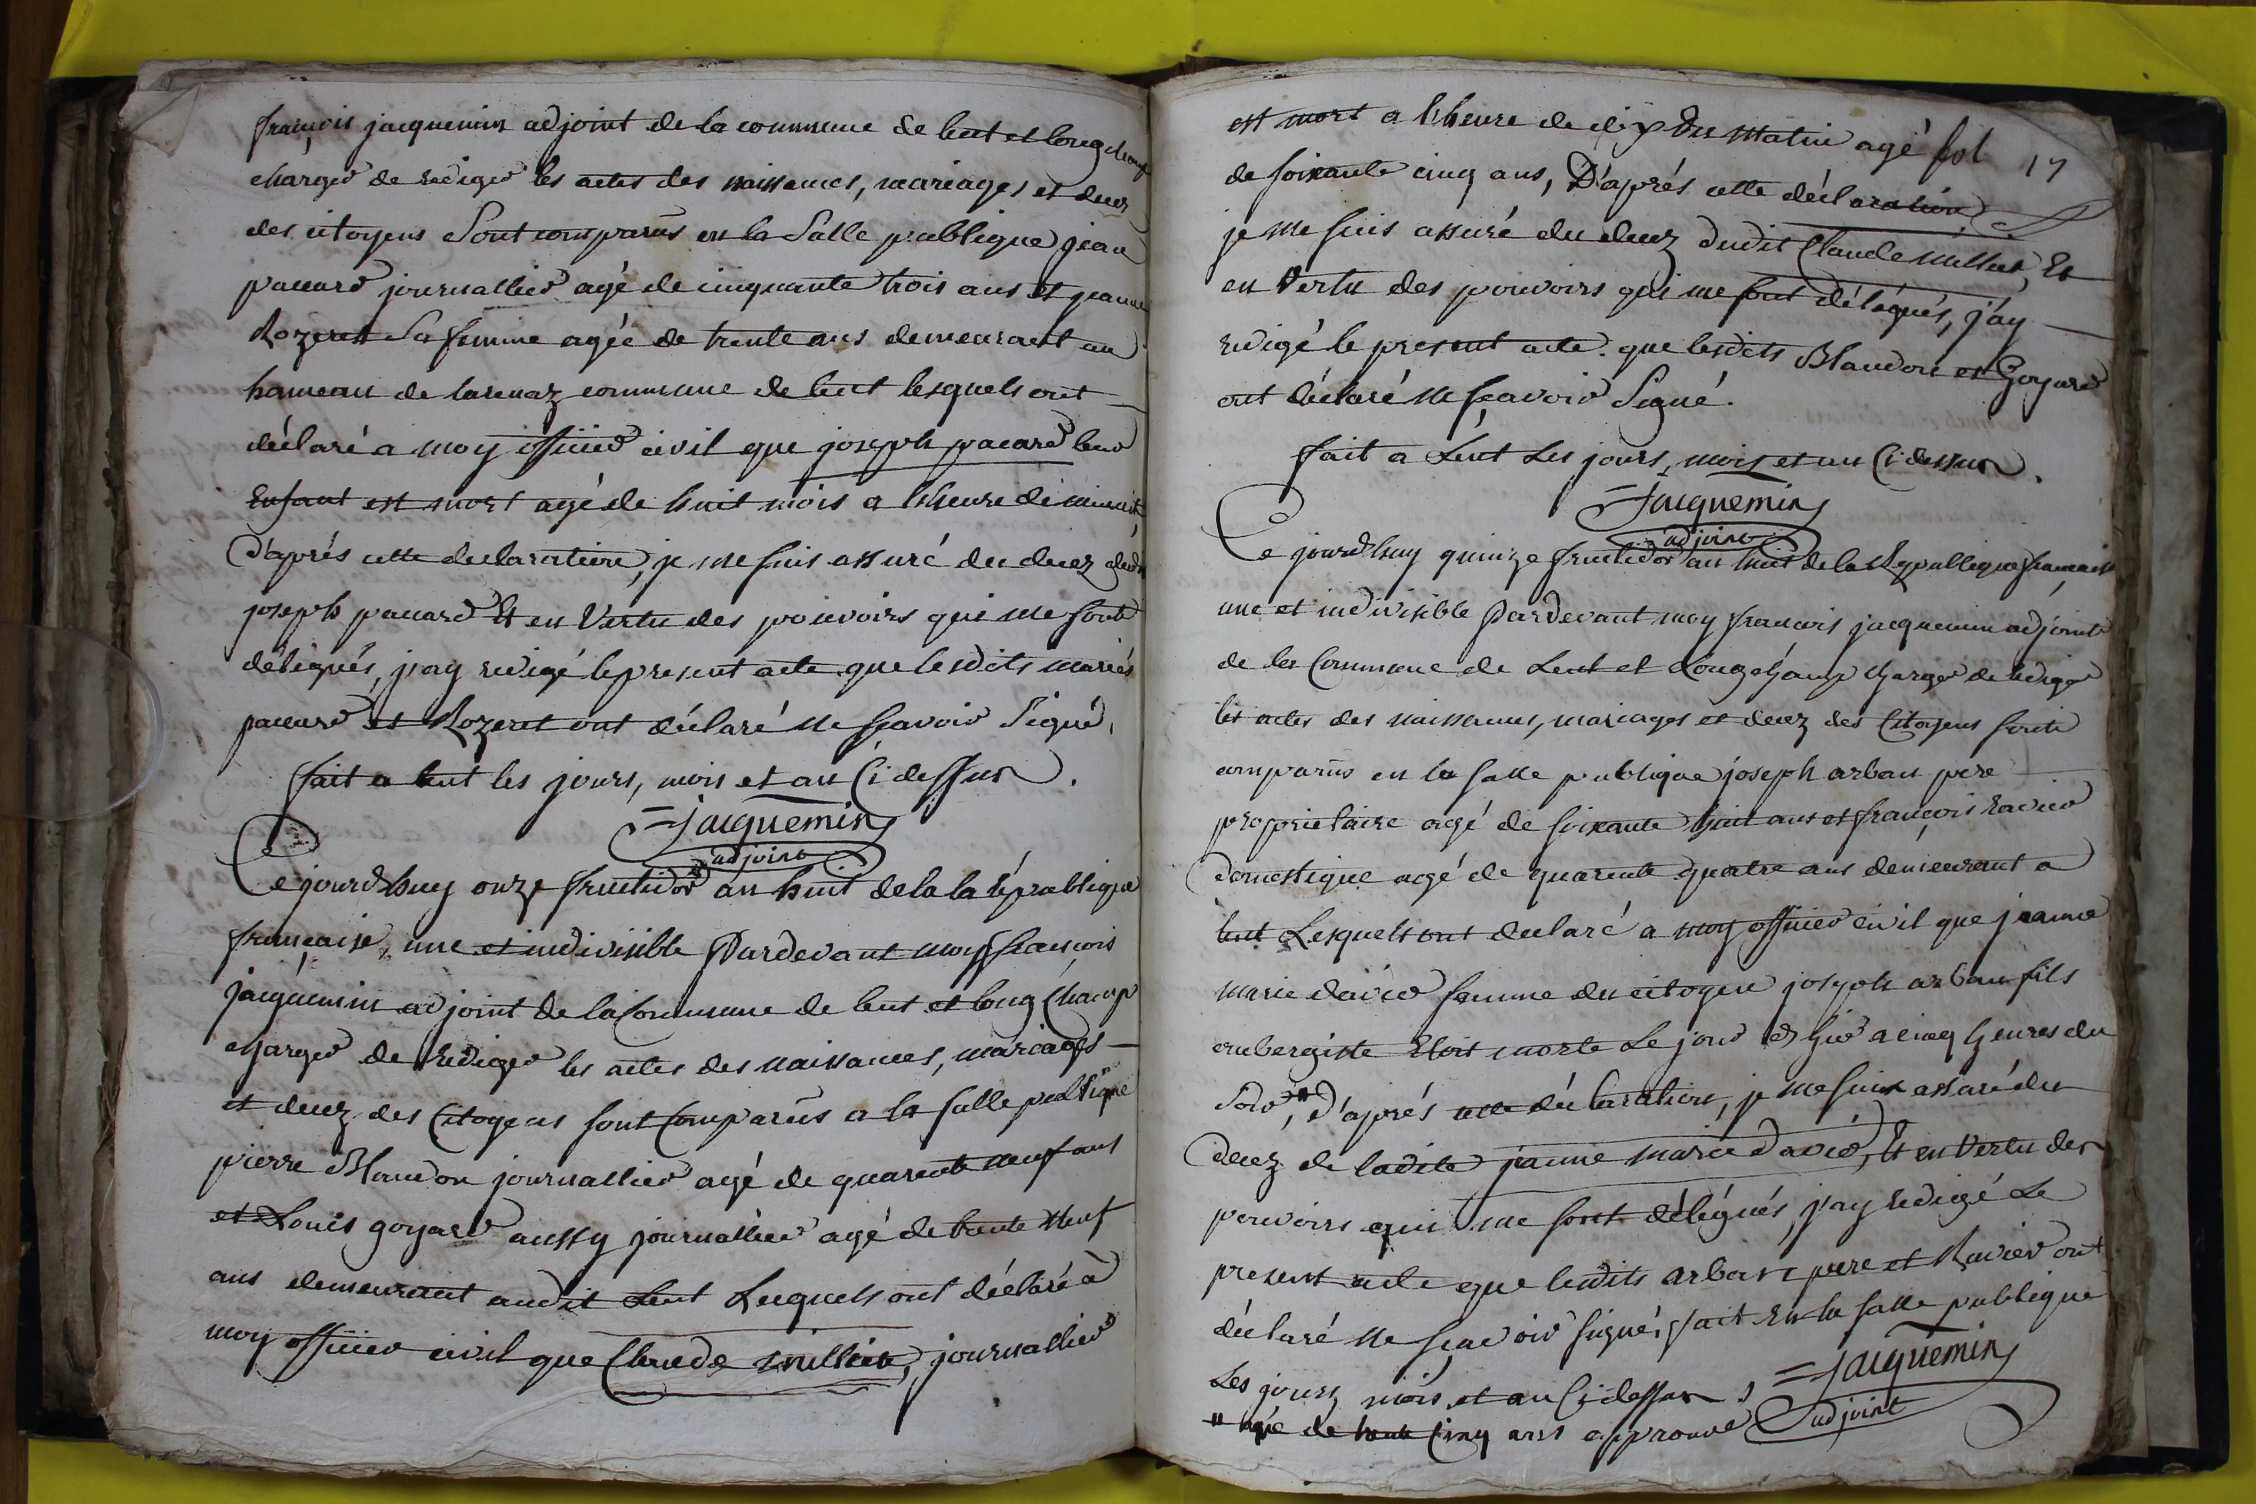 françois jacquemin adjoint de la commune de lent et longchamp
charger de rediger les actes des naissances, mariages et decez
des citoyens Sont comparus en la Salle publique jean
paccard journallier agé de cinquante trois ans et jeanne
Rozeret Sa femme agée de trente ans demeurant au
hameau de larenaz commune de lent lesquels ont
déclaré a moy officier civil que joseph pacard leur
Enfant est mort agé de huit mois a lheure de minuit,
D'aprés cette declaration, je me suis assuré du decez dudit
joseph paccard Et en Vertu des pouvoirs qui me sont
délégués, j'ay redigé le present acte que lesdits mariés
paccard et Rozeret ont déclaré ne sçavoir Signé,
fait a lent les jours, mois et an Ci dessus.
=jacquemin
adjoint
Ce jourdhuy onze fructidor an huit de la la république
française, une et indivisible Pardevant moy françois
jacquemin adjoint de la Commune de lent et long Champ
charger de Rediger les actes des naissances, mariages
et decez des Citoyens sont Comparus a la salle publique
pierre Blandon journallier agé de quarente neuf ans
et Louis goyard aussy journallier agé de trente Neuf
ans demeurant audit Lent Lesquels ont déclaré à
moy officier civil que Claude millet, journallier
est mort a lheure de dix Du Matin agé fol 17
de soixante cinq ans, D'aprés cette déclaration
je me suis assuré du decez dudit Claude millet, Et
en Vertu des pouvoirs qui me sont délégués, j'ay
redigé le present acte que lesdits Blandon et Goyard
ont déclaré ne sçavoir Signé.
fait a Lent Les jours, mois et an Ci dessus.
=jacquemin
adjoint
Ce jourdhuy quinze fructidor an huit de la République française
une et indivisible Pardevant moy francois jacquemin adjoint
de la Commune de Lent et Longchamp charger de rediger
les actes des naissances, mariages et decez des Citoyens sont
comparus en la salle publique joseph arban pere
proprietaire agé de soixante huit ans et françois Ravier
Domestique agé de quarente quatre ans demeurant a
lent Lesquels ont declaré a moy officier civil que jeanne
marie david femme du citoyen joseph arban fils
aubergiste Etoit morte Le jour d'hier a cinq heures du
Soir," D'aprés cette déclaration, je me suis assuré du
Decez de ladite jeanne marie David, Et en Vertu des
pouvoirs qui me sont délégués, j'ay redigé Le
present acte que lesdits arban pere et Ravier ont
déclaré ne sçavoir signé, fait En la salle publique
Les jours, mois, et an Ci dessus,
=jacquemin
adjoint
" agée de trente Cinq ans approuvé